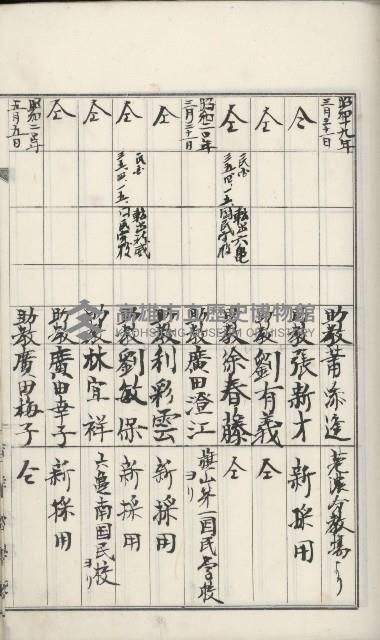 昭和十九年三月三十一日
助教 黄添逢
荖濃分教場ヨリ
仝
助教 張新才
新採用
仝
助教 劉有義
仝
仝
民国三五、四、一五、転出六亀国民学校
助教 徐春藤
仝
昭和二〇年三月三十一日
助教 廣田澄江
旗山第一国民学校ヨリ
仝
助教 利彩雲
新採用
仝
民国三五、四、一五、
助教 劉敏保
新採用
仝
助教 林宜祥
六亀南国民校ヨリ
仝
助教 廣田幸子
新採用
昭和二〇年五月五日
助教 廣田梅子
仝
高雄市立歷史博物館
KAOHSIUNG MUSEUM OF HISTORY